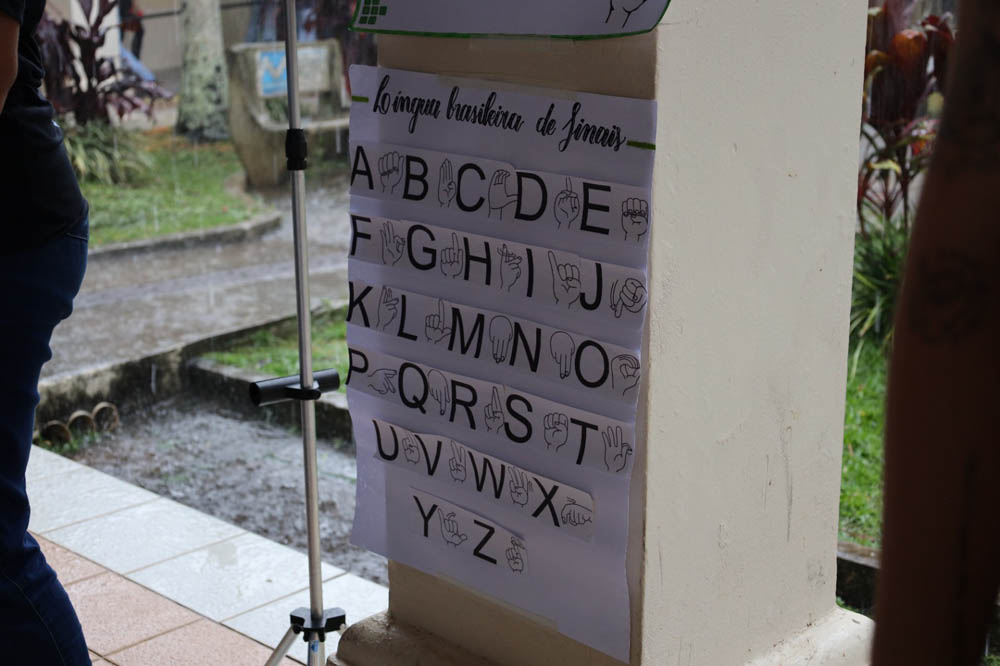 Língua brasileira de Sinais
A B C D E
F G H I J
K L M N O
P Q R S T
U V W X
Y Z